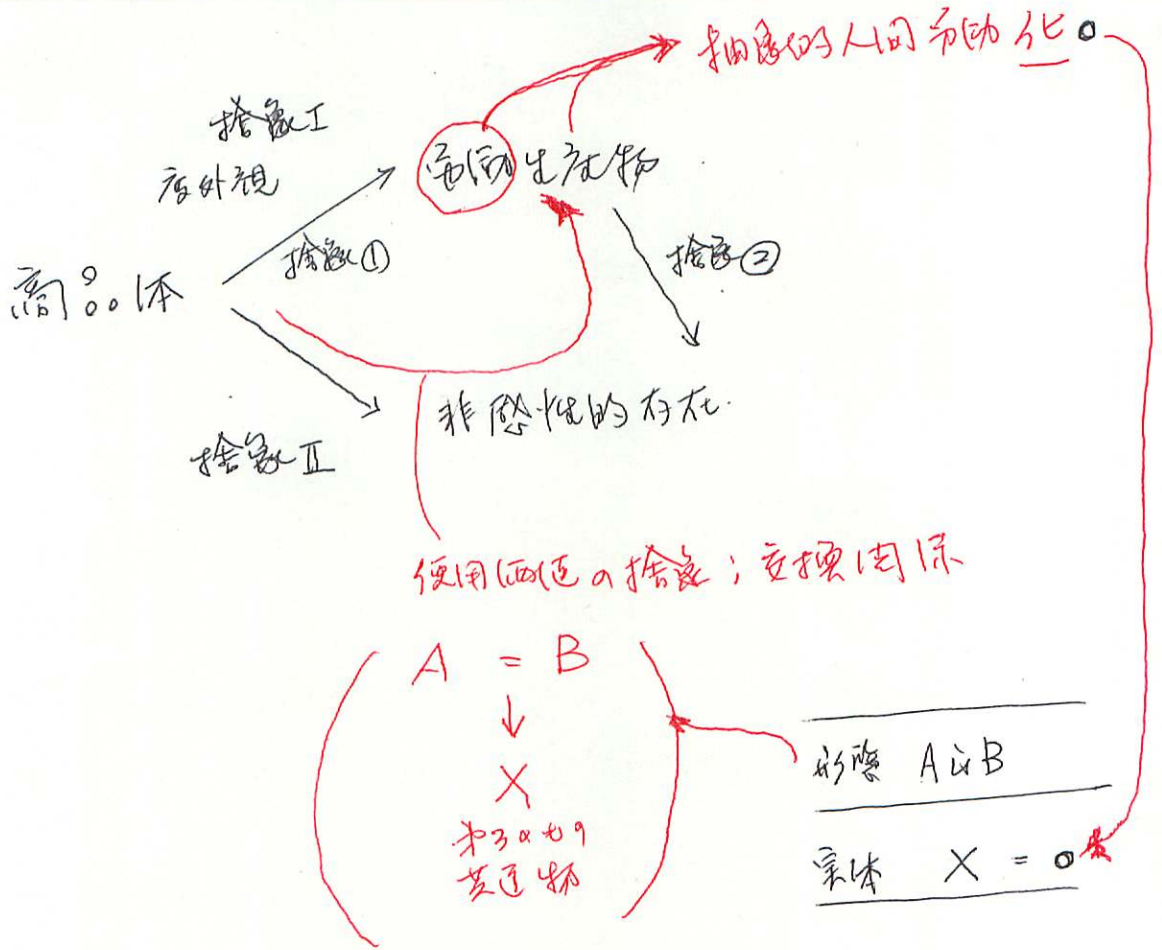 抽象的人间労働化
捨象Ⅰ
度外視
労働生産物
捨象①
捨象②
商品体
非感性的存在.
捨象Ⅱ
使用価値の捨象；交換関係
A = B
X
第3のもの
共通物
形態 A is B
実体 X = o